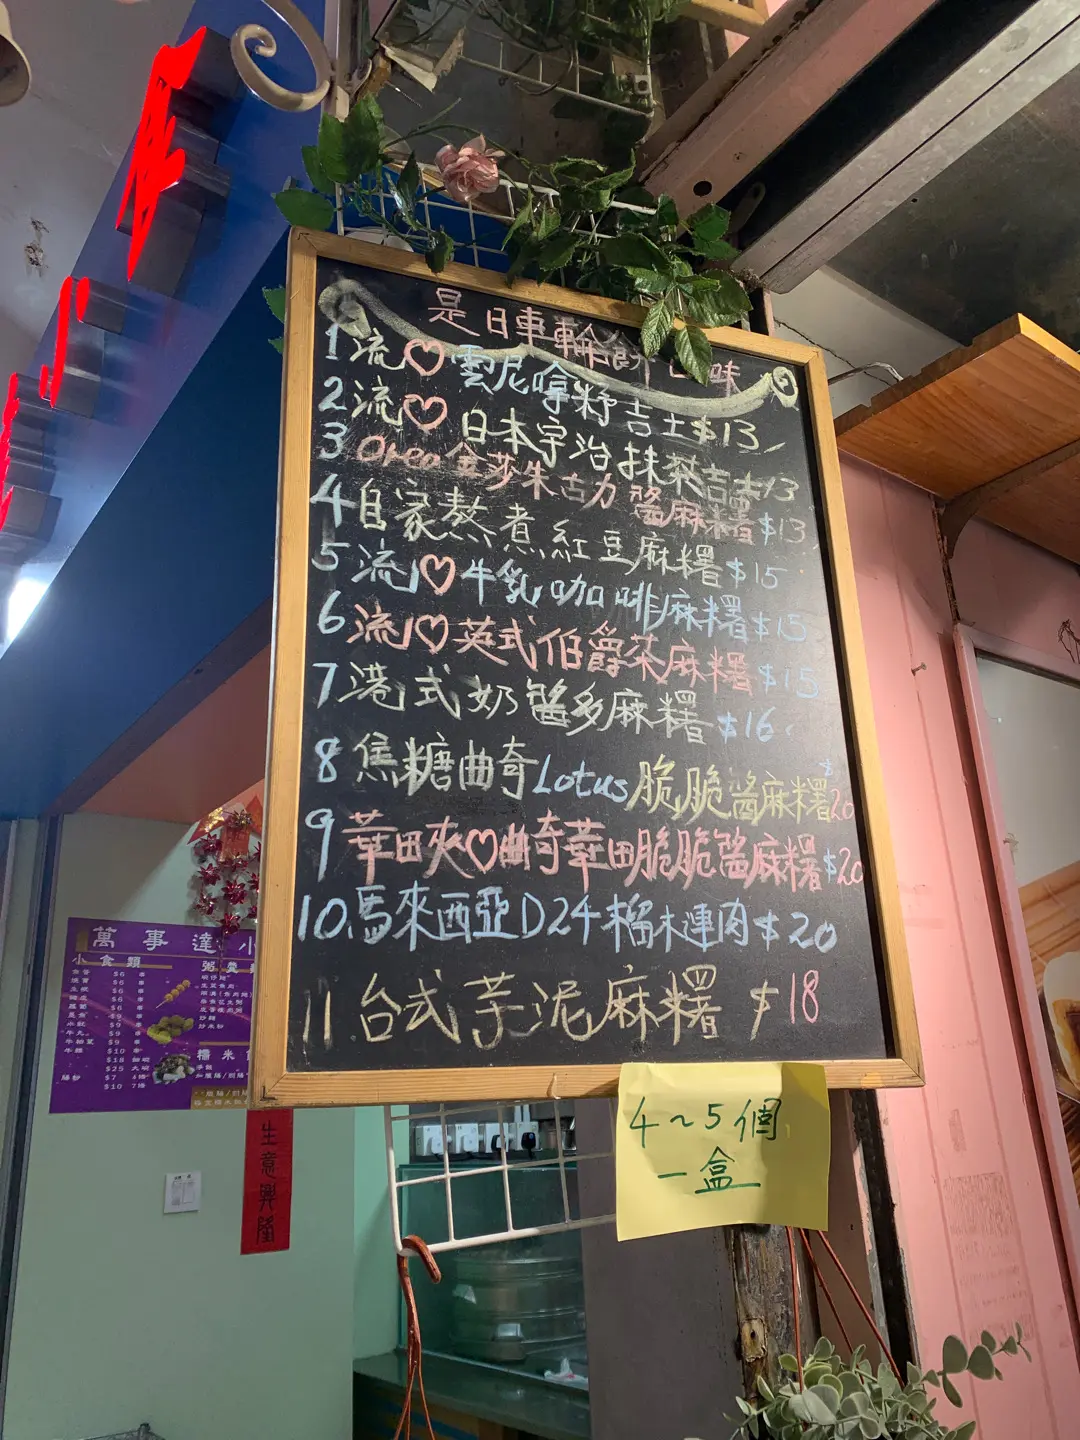 是日車輪餅口味
1 流♡雲尼嗱籽吉士$13
2 流♡日本宇治抹茶吉士$13
3 Oreo金莎朱古力醬麻糬$13
4 自家熬煮紅豆麻糬$15
5 流♡牛乳咖啡麻糬$15
6 流♡英式伯爵茶麻糬$15
7 港式奶醬多麻糬$16
8 焦糖曲奇Lotus脆脆醬麻糬$20
9 華田夾♡曲奇華田脆脆醬麻糬$20
10.馬來西亞D24榴梿肉$20
11 台式芋泥麻糬 $18
4~5個
一盒
萬事達小
小食類
粥羹類
糯米飯
生意興隆